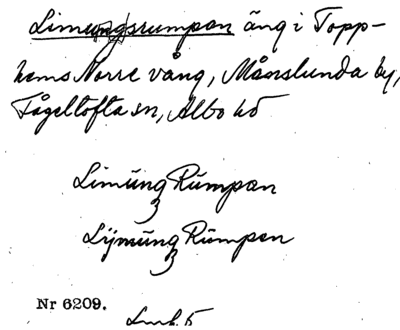 Limungsrumpan äng i Topp-
hems Norre vång, Månslunda by,
Fågeltofta sn, Albo hd
Limŭng Rŭmpan
3
Lijmŭng Rŭmpen
3
Nr 6209.